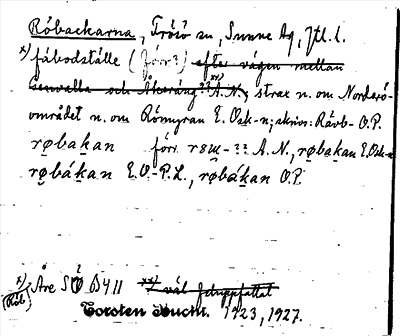 Röbackarna, Frösö sn, Sunne tg, Jtl. l.
x) fäbodställe (förr?) efter vägen mellan
och Åkeräng?? A.N., strax n. om Norderö-
området n. om Römyran E. Osk-n; skriv: Rävb- O.P.
røbakan förr rɛɯ-?? A.N., røbakan E. Osk-n
røbákan E.O-P.L., røbákan O.P.
x) Åre SÖ B4 11 xx) väl feluppfattat
(Röb)
Torsten Bucht. 1923, 1927.